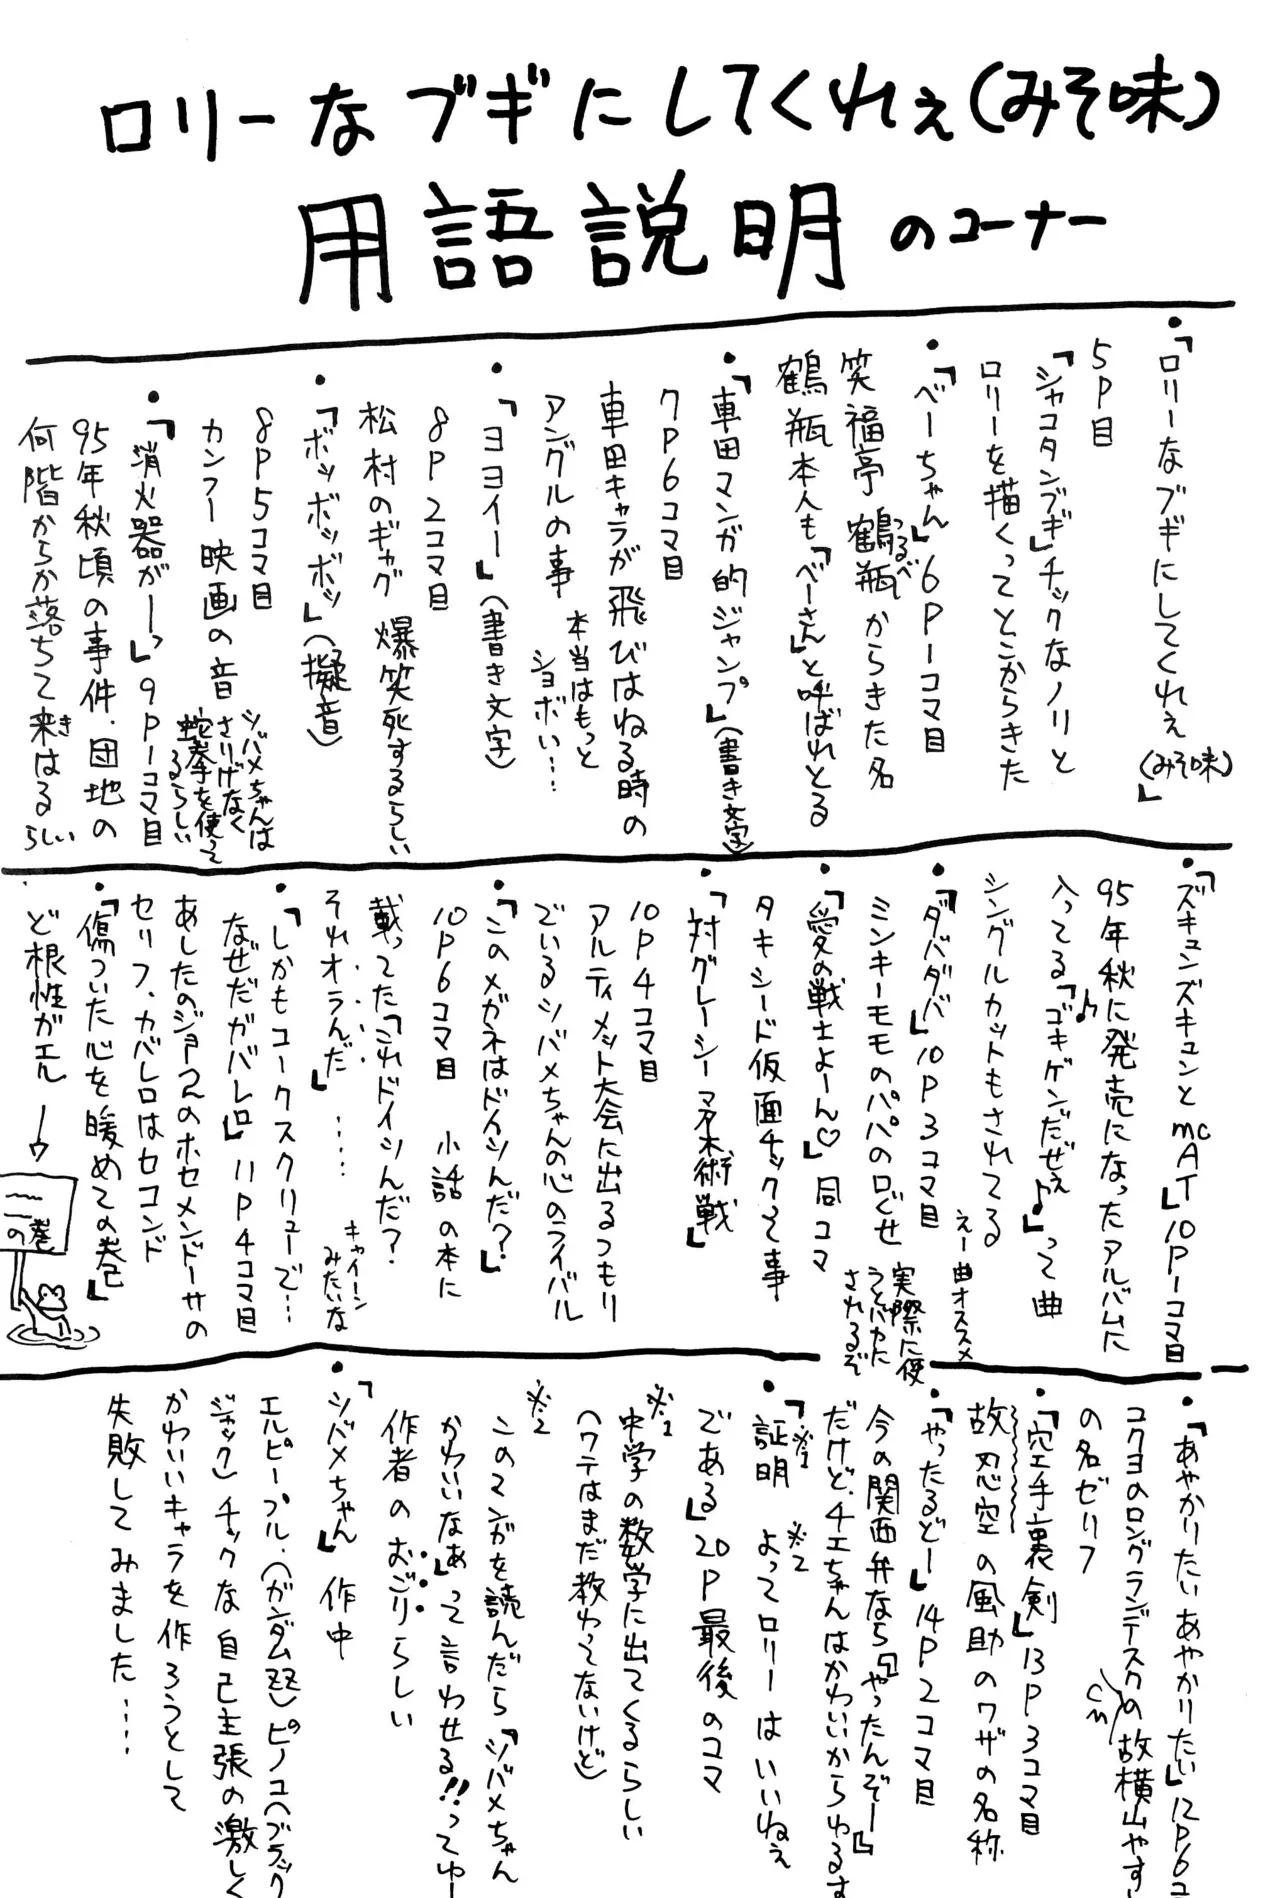 ロリーなブギにしてくれぇ(みそ味)
用語説明のコーナー
・「ロリーなブギにしてくれぇ(みそ味)」
5P目
「シャコタンブギ」チックなノリと
ロリーを描くってとこからきた
・「べーちゃん」6P1コマ目
笑福亭鶴瓶からきた名
つるべ
鶴瓶本人も「べーさん」と呼ばれとる
・「車田マンガ的ジャンプ」(書き文字)
7P6コマ目
車田キャラが飛びはねる時の
アングルの事
本当はもっと
ショボい…
・「ヨヨイー」(書き文字)
8P2コマ目
松村のギャグ 爆笑死するらしい
・「ボッボッボッ」(擬音)
8P5コマ目
カンフー映画の音
シバメちゃんは
さりげなく
蛇拳を使って
るらしい
・「消火器がーっ」9P1コマ目
95年秋頃の事件.団地の
何階からか落ちて来はるらしい
き
・「ズキュンズキュンとmcAT」10P1コマ目
95年秋に発売になったアルバムに
入ってる「ゴキゲンだぜぇ♪」って曲
シングルカットもされてる
えー曲オススメ
・「ダバダバ」10P3コマ目
ミンキーモモのパパの口ぐせ
実際に使
うとバカに
されるぞ
・「愛の戦士よーん♡」同コマ
タキシード仮面チックって事
・「対グレーシー柔術戦」
10P4コマ目
アルティメット大会に出るつもり
でいるシバメちゃんの心のライバル
・「このメガネはドイツんだ?」
10P6コマ目 小話の本に
載ってた「これドイツんだ?
それオランだ」……
キャイーン
みたいな
・「しかもコークスクリューで…
なぜだガバレロ」11P4コマ目
あしたのジョー2のホセメンドーサの
セリフ.カバレロはセコンド
・「傷ついた心を暖めての巻」
ど根性ガエル →
の巻
・「あやかりたいあやかりたい」12P6コ
コクヨのロングランデスクの故横山やす
CM
の名ゼリフ
・「空手裏剣」13P3コマ目
故忍空の風助のワザの名称
・「やったるどー」14P2コマ目
今の関西弁なら「やったんぞー」
だけど、チエちゃんはかわいからゆるす
・「※1証明 ※2よってロリーはいいねぇ
である」20P最後のコマ
※1
中学の数学に出てくるらしい
(ワテはまだ教わってないけど)
※2
このマンガを読んだら「シバメちゃん
かわいいなぁ」って言わせる!!ってゆー
作者のおごりらしい
・「シバメちゃん」作中
エルピープル.(ガンダムZZ)ピノコ(ブラック
の
ジャック)チックな自己主張の激しく
かわいいキャラを作ろうとして
失敗してみました……